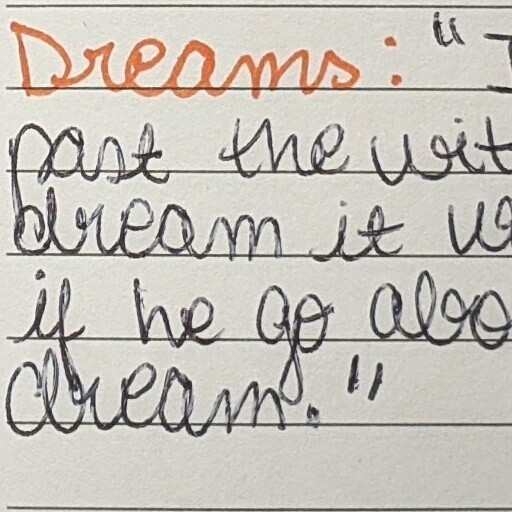 Dreams: "I
past the wit
dream it w
if he go abo
dream."